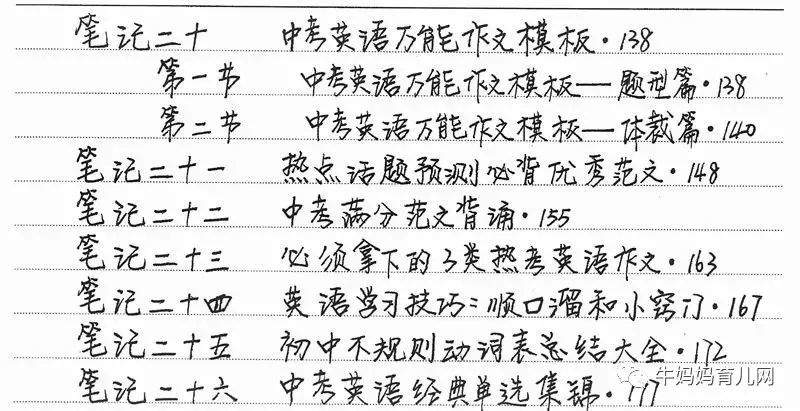 笔记二十 中考英语万能作文模板·138
第一节 中考英语万能作文模板——题型篇·138
第二节 中考英语万能作文模板——体裁篇·140
笔记二十一 热点话题预测必背优秀范文·148
笔记二十二 中考满分范文背诵·155
笔记二十三 必须拿下的3类热考英语作文·163
笔记二十四 英语学习技巧：顺口溜和小窍门·167
笔记二十五 初中不规则动词表总结大全·172
笔记二十六 中考英语经典单选集锦·177
牛妈妈育儿网